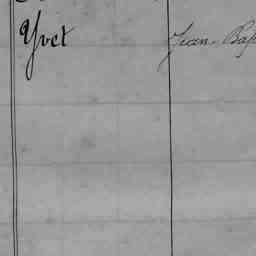 Yvet Jean-Bap